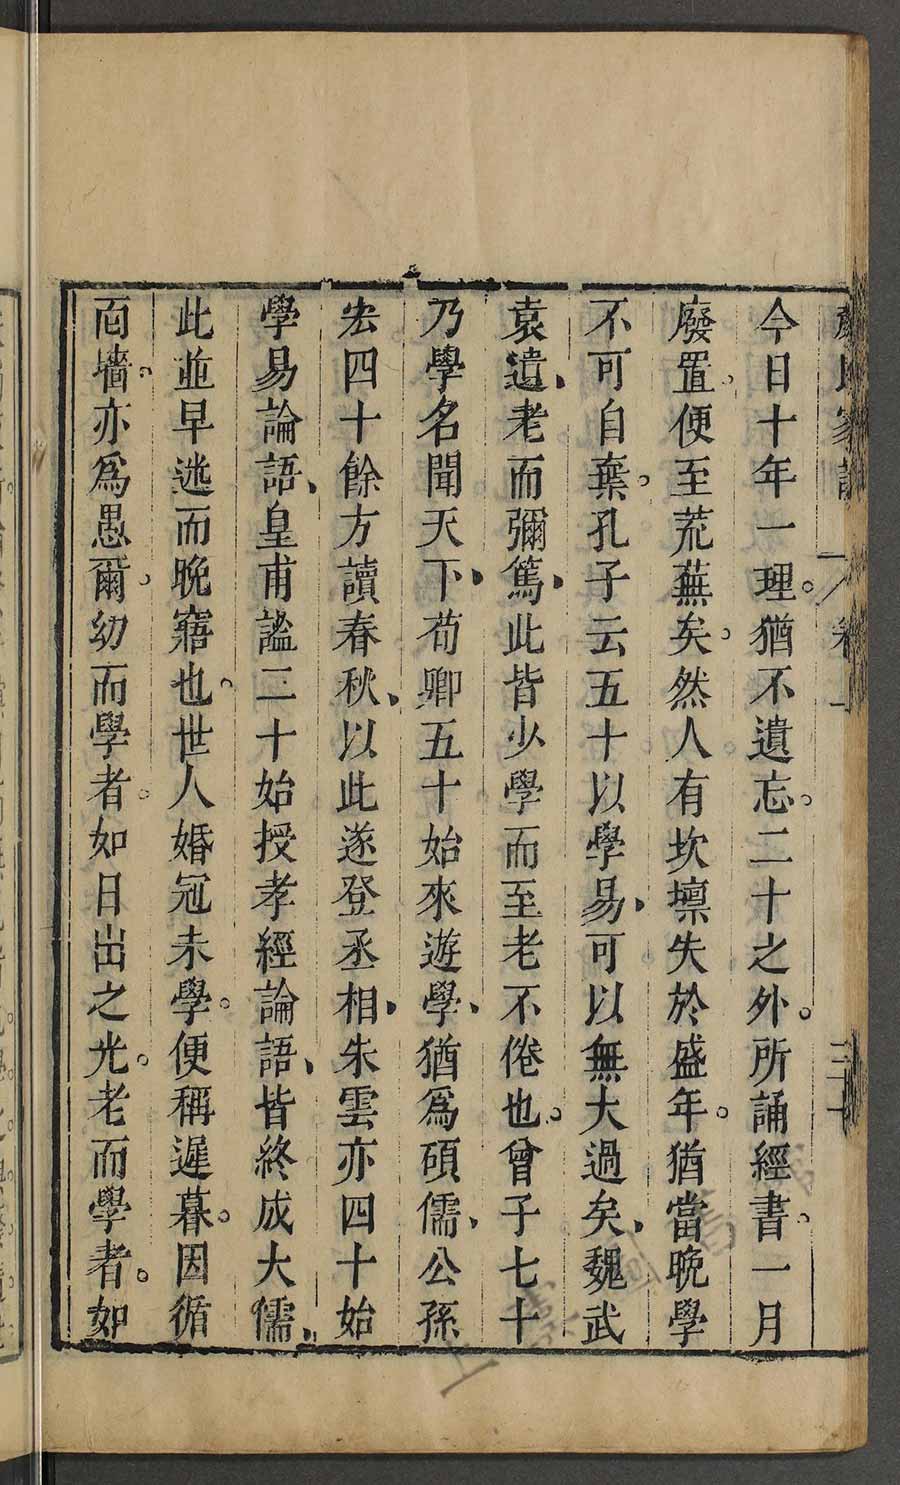 顏氏家訓 卷上 三十
今日十年一理。猶不遺忘。二十之外。所誦經書。一月
廢置。便至荒蕪矣。然人有坎壈。失於盛年。猶當晚學
不可自棄。孔子云五十以學易、可以無大過矣、魏武
袁遺、老而彌篤、此皆少學而至老不倦也。曾子七十
乃學名聞天下、荀卿五十始來遊學、猶為碩儒、公孫
宏四十餘方讀春秋、以此遂登丞相、朱雲亦四十始
學易論語、皇甫謐二十始授孝經論語、皆終成大儒、
此並早迷而晚寤也。世人婚冠未學。便稱遲暮。因循
面墻。亦為愚爾。幼而學者。如日出之光。老而學者。如